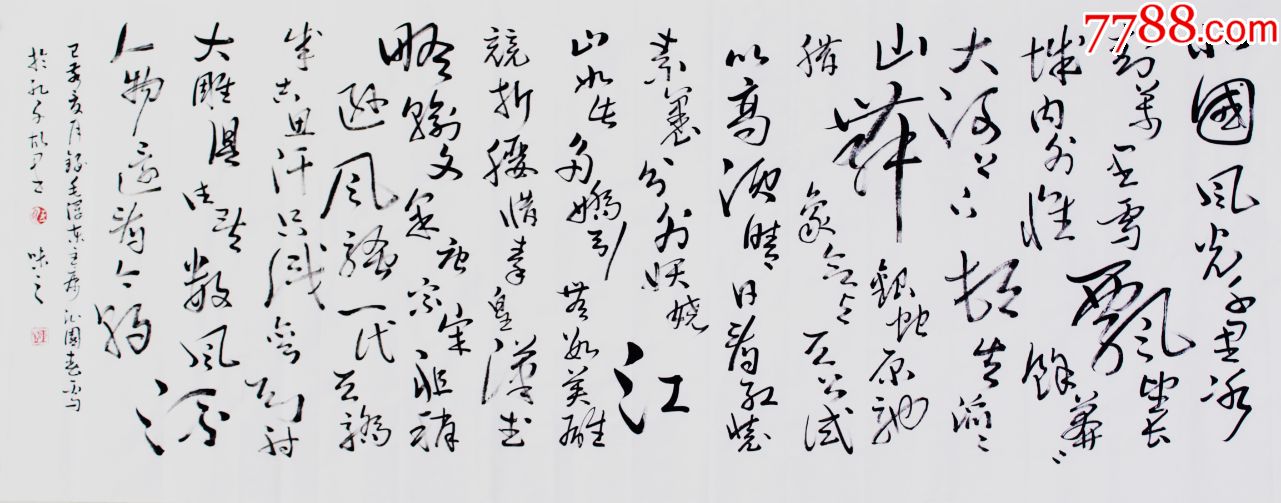 7788.com
北國風光千里冰
封萬里雪飄望長
城内外惟餘莽〻
大河上下頓失滔〻
山舞銀蛇原馳
腊象欲与天公试
比高須晴日看红裝
素裹分外妖娆江
山如此多嬌引無數英雄
競折腰惜秦皇漢武
略輸文采唐宗宋祖稍
遜風騷一代天驕
成吉思汗只識彎弓射
大雕俱往矣數風流
人物還看今朝
己亥月錄毛澤東主席沁園春雪
於孔子故里 味之